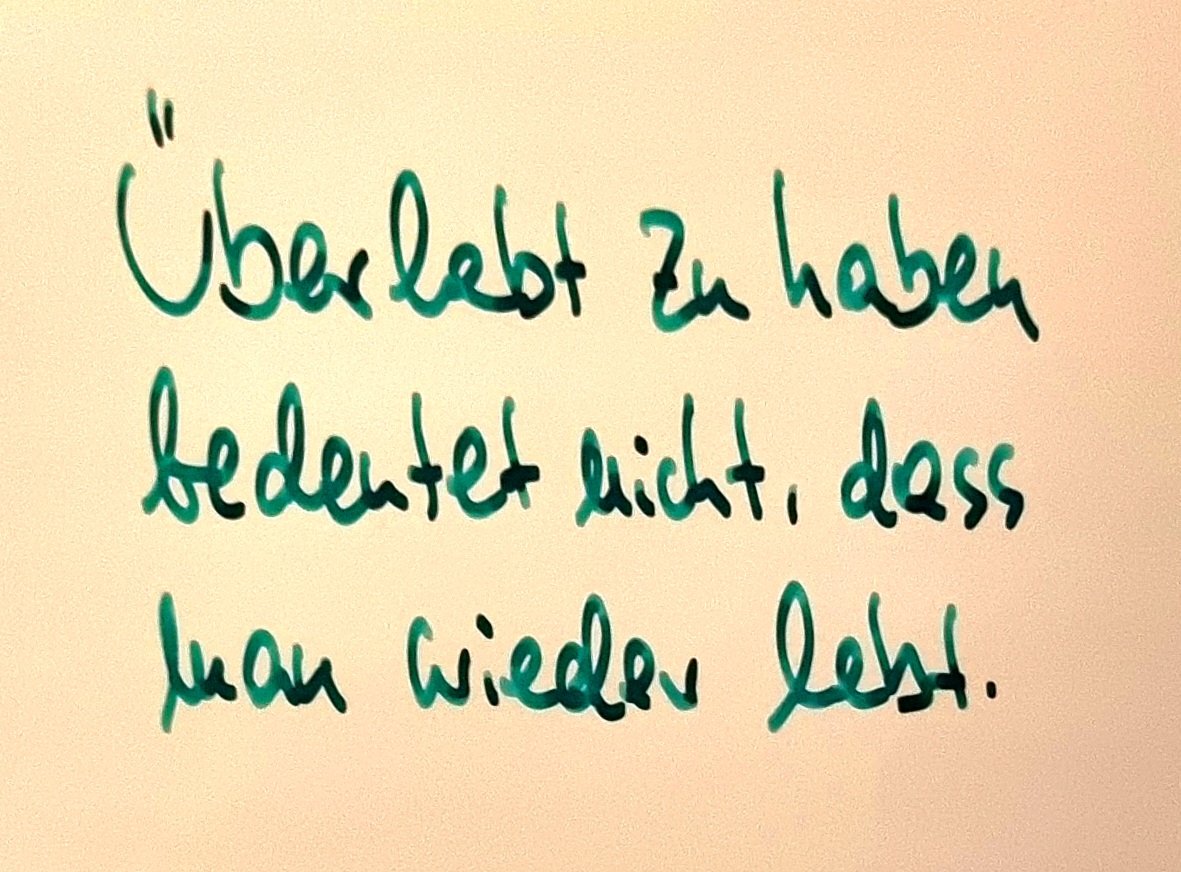 Überlebt zu haben
bedeutet nicht, dass
man wieder lebt.